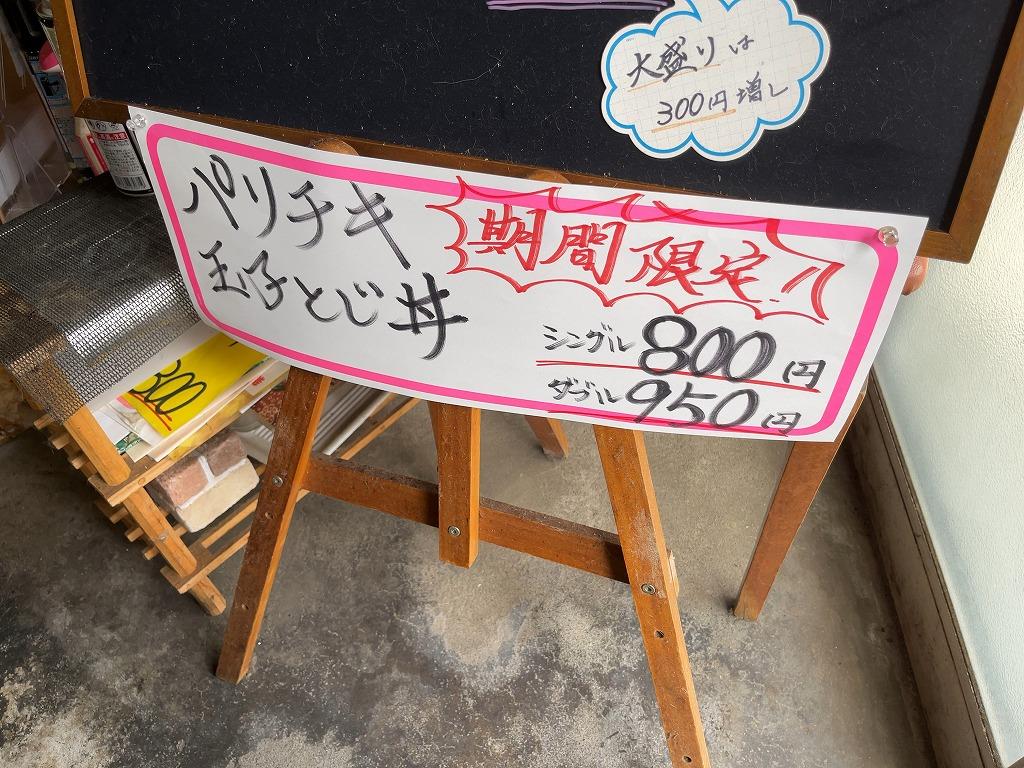 大盛りは
300円増し
パリチキ
玉子とじ丼
期間限定!!
シングル 800円
ダブル 950円
300